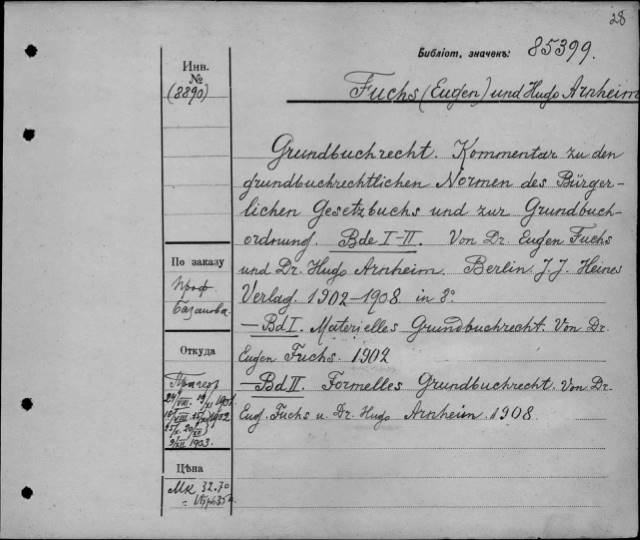 28
Библіот. значекъ: 85399.
Инв.
№
(8890)
Fuchs (Eugen) und Hugo Arnheim
Grundbuchrecht. Kommentar zu den
grundbuchrechtlichen Normen des Bürger-
lichen Gesetzbuchs und zur Grundbuch-
ordnung. Bde I-II. Von Dr. Eugen Fuchs
und Dr. Hugo Arnheim. Berlin. J. J. Heines
Verlag. 1902-1908 in 8°.
— Bd I. Materielles Grundbuchrecht. Von Dr.
Eugen Fuchs. 1902
— Bd II. Formelles Grundbuchrecht. Von Dr.
Eug. Fuchs u. Dr. Hugo Arnheim. 1908.
По заказу
Проф.
Базанова.
Откуда
1903.
Цѣна
Мк 32.70